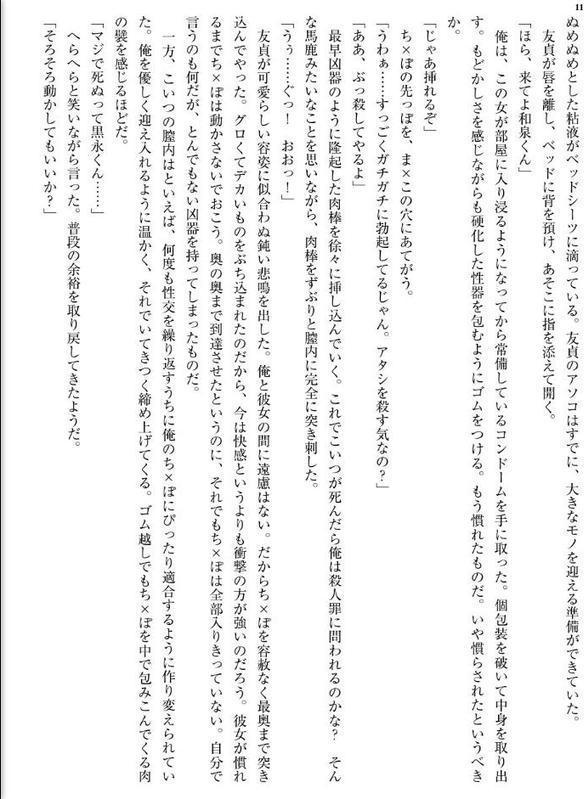 11
ぬめぬめとした粘液がベッドシーツに滴っている。友貞のアソコはすでに、大きなモノを迎える準備ができていた。
友貞が唇を離し、ベッドに背を預け、あそこに指を添えて開く。
「ほら、来てよ和泉くん」
俺は、この女が部屋に入り浸るようになってから常備しているコンドームを手に取った。個包装を破いて中身を取り出
す。もどかしさを感じながらも硬化した性器を包むようにゴムをつける。もう慣れたものだ。いや慣らされたというべき
か。
「じゃあ挿れるぞ」
ち×ぽの先っぽを、ま×この穴にあてがう。
「うわぁ……すっごくガチガチに勃起してるじゃん。アタシを殺す気なの?」
「ああ、ぶっ殺してやるよ」
最早凶器のように隆起した肉棒を徐々に挿し込んでいく。これでこいつが死んだら俺は殺人罪に問われるのかな? そん
な馬鹿みたいなことを思いながら、肉棒をずぶりと膣内に完全に突き刺した。
「うぅ……ぐっ! おおっ!」
友貞が可愛らしい容姿に似合わぬ鈍い悲鳴を出した。俺と彼女の間に遠慮はない。だからち×ぽを容赦なく最奥まで突き
込んでやった。グロくてデカいものをぶち込まれたのだから、今は快感というよりも衝撃の方が強いのだろう。彼女が慣れ
るまでち×ぽは動かさないでおこう。奥の奥まで到達させたというのに、それでもち×ぽは全部入りきっていない。自分で
言うのも何だが、とんでもない凶器を持ってしまったものだ。
一方、こいつの膣内はといえば、何度も性交を繰り返すうちに俺のち×ぽにぴったり適合するように作り変えられてい
た。俺を優しく迎え入れるように温かく、それでいてきつく締め上げてくる。ゴム越しでもち×ぽを中で包みこんでくる肉
の襞を感じるほどだ。
「マジで死ぬって黒永くん……」
へらへらと笑いながら言った。普段の余裕を取り戻してきたようだ。
「そろそろ動かしてもいいか?」